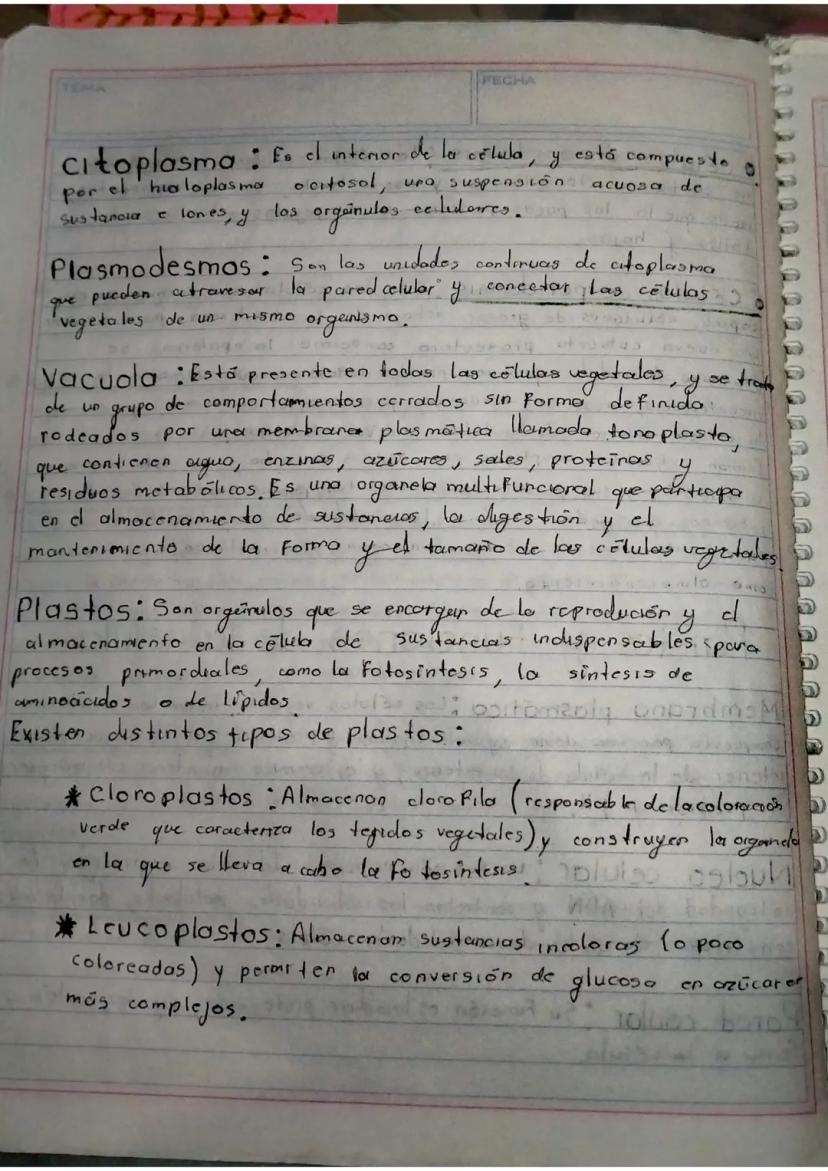 TEMA
FECHA
Citoplasma: Es el interior de la célula, y está compuesto
por el hialoplasma o citosol, una suspensión acuosa de
sustancia e iones, y los orgánulos celulares.
Plasmodesmos: Son las unidades continuas de citoplasma
que pueden atravesar la pared celular y conectar las células
vegetales de un mismo organismo.
Vacuola: Está presente en todas las células vegetales, y se trata
de un grupo de comportamientos cerrados sin forma definida
rodeados por una membrana plasmática llamada tonoplasto,
que contienen agua, enzinas, azúcares, sales, proteínas y
residuos metabólicos. Es una organela multifuncional que participa
en el almacenamiento de sustancias, la digestión y el
mantenimiento de la forma y el tamaño de las células vegetales.
Plastos: Son orgánulos que se encargan de la reprodución y el
almacenamiento en la célula de sustancias indispensables para
procesos primordiales, como la fotosíntesis, la síntesis de
aminoácidos o de lípidos.
Existen distintos tipos de plastos:
* Cloroplastos: Almacenan clorofila (responsable de la coloración
verde que caracteriza los tejidos vegetales) y construyen la organela
en la que se lleva a cabo la fotosíntesis.
* Leucoplastos: Almacenan sustancias incoloras (o poco
coloreadas) y permiten la conversión de glucosa en azúcares
más complejos.